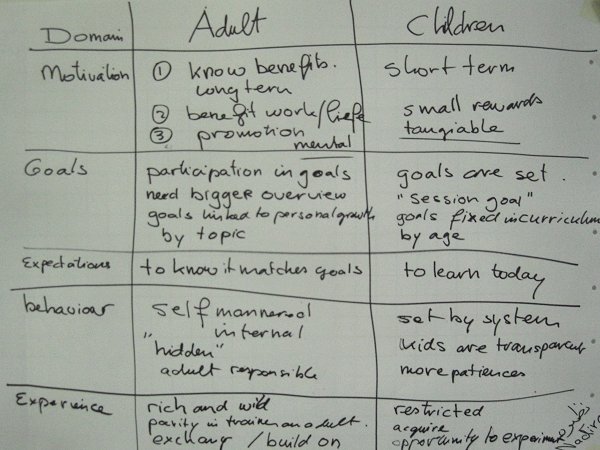 Domain Adult Children
Motivation ① know benefits. short term
long term
② benefit work/liefe small rewards
③ promotion tangiable
mental
Goals participation in goals goals are set.
need bigger overview "session goal"
goals linked to personal growth goals fixed in curriculum
by topic by age
Expectations to know it matches goals to learn today
behaviour self mannered set by system
internal kids are transparent
"hidden" more patiences
adult responsible
Experience rich and wild restricted
parity in trainer an adult. acquire
exchang / build on opportunity to experiment